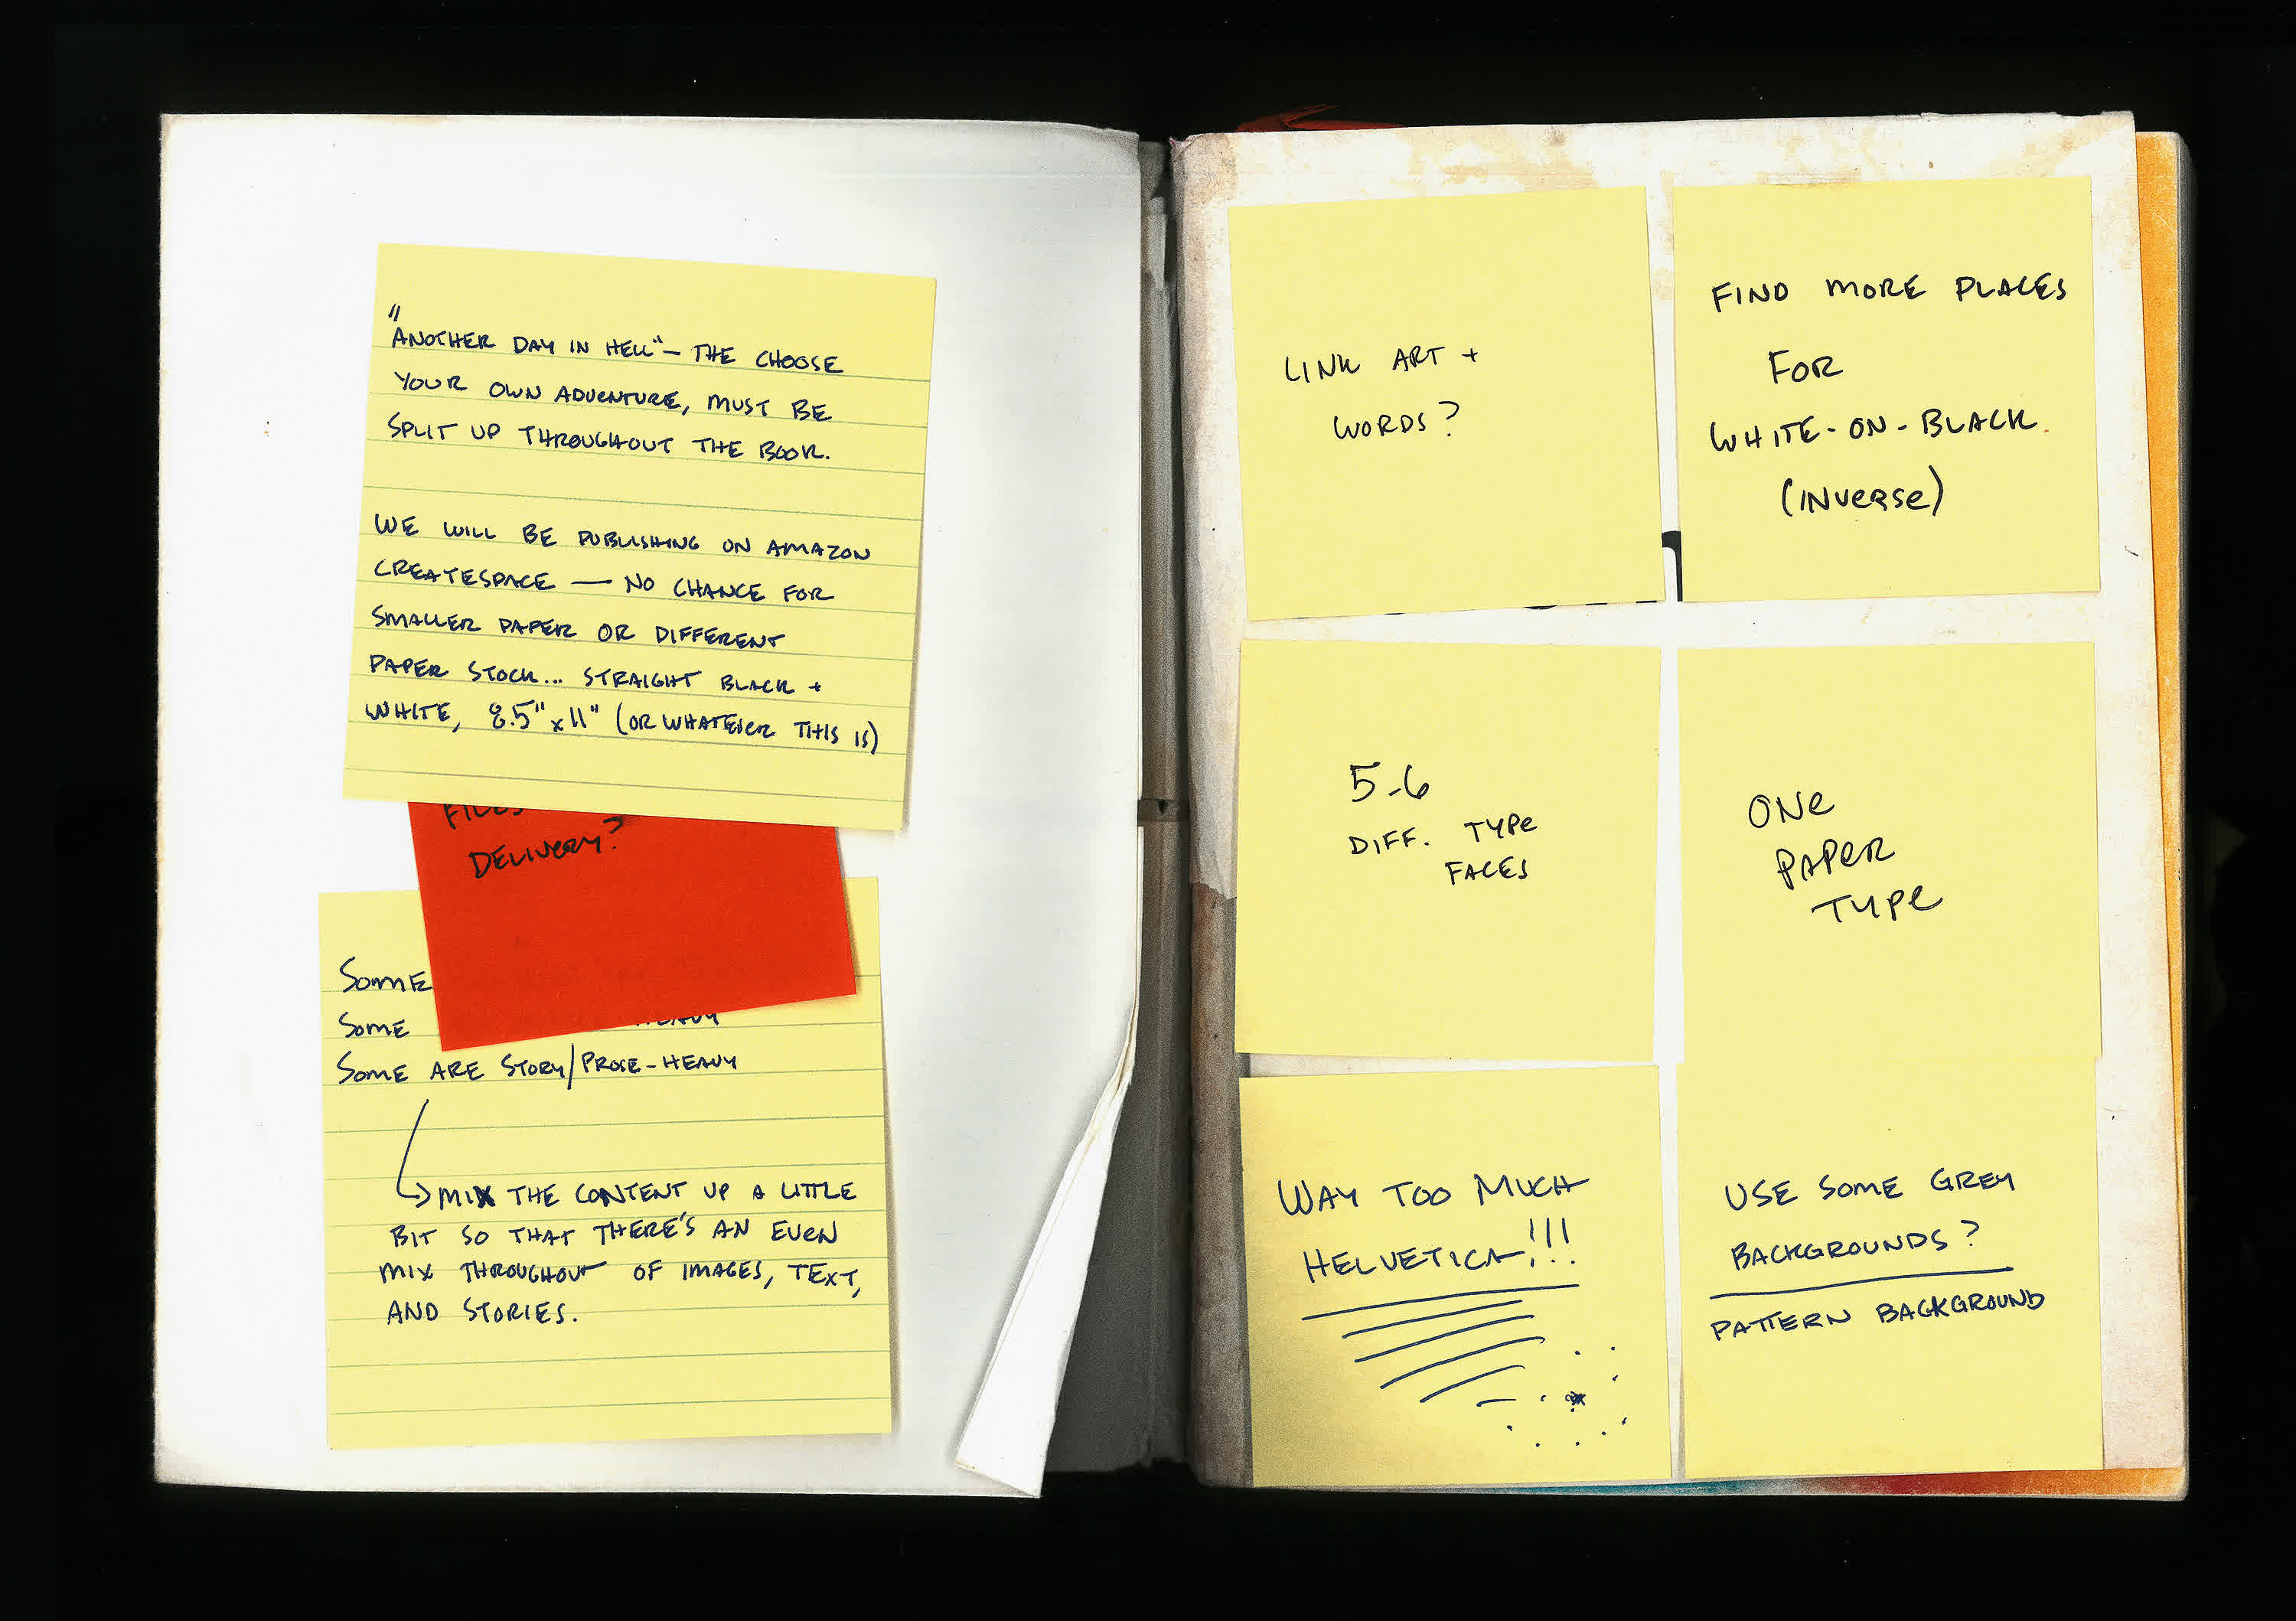 "ANOTHER DAY IN HELL" — THE CHOOSE
YOUR OWN ADVENTURE, MUST BE
SPLIT UP THROUGHOUT THE BOOK.
WE WILL BE PUBLISHING ON AMAZON
CREATESPACE — NO CHANCE FOR
SMALLER PAPER OR DIFFERENT
PAPER STOCK... STRAIGHT BLACK +
WHITE, 8.5" x 11" (OR WHATEVER THIS IS)
DELIVERY?
SOME
SOME
SOME ARE STORY/PROSE-HEAVY
MIX THE CONTENT UP A LITTLE
BIT SO THAT THERE'S AN EVEN
MIX THROUGHOUT OF IMAGES, TEXT,
AND STORIES.
LINK ART +
WORDS?
FIND MORE PLACES
FOR
WHITE-ON-BLACK.
(INVERSE)
5-6
DIFF. TYPE
FACES
ONE
PAPER
TYPE
WAY TOO MUCH
HELVETICA!!!
USE SOME GREY
BACKGROUNDS?
PATTERN BACKGROUND